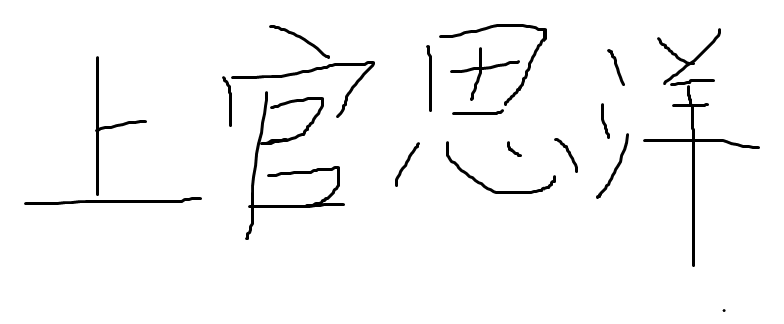 上官思洋